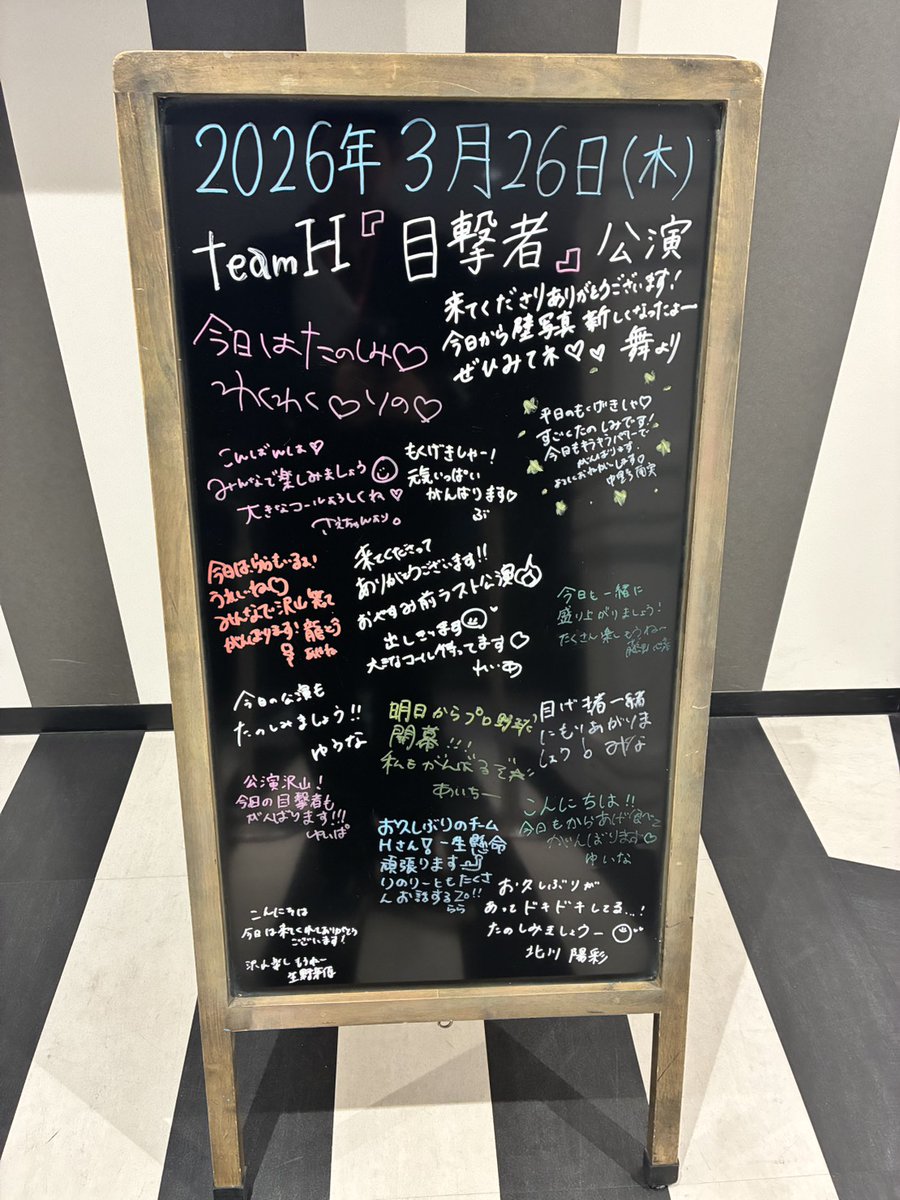 2026年3月26日(木)
teamH『目撃者』公演
来てくださりありがとうございます!
今日から壁写真 新しくなったよー
ぜひみてネ♡♡ 舞より
今日はたのしみ♡
わくわく♡りの♡
平日のもくげきしゃ♡
すごくたのしみです!
今日もキラキラパワーで
がんばります
こんばんは♡
みんなで楽しみましょう
大きなコールよろしくね♡
もくげきしゃー!
元気いっぱい
がんばります♡
ぶ
今日は
うれしいね♡
みんなで沢山笑って
がんばります!
来てくださって
ありがとうございます!!
おやすみ前ラスト公演
出しきります
大きなコール待ってます♡
今日も一緒に
盛り上がりましょう!
たくさん楽しもうねー
今日の公演も
たのしみましょう!!
ゆうな
明日からプロ野球
開幕!!!
私もがんばるぞ☆
あいちー
目げき者一緒
にもりあがりま
しょう! みな
公演沢山!
今日の目撃者も
がんばります!!!
お久しぶりのチーム
Hさん! 一生懸命
頑張ります
りのりーともたくさ
んお話するZO!!
らら
こんにちは!!
今日もからあげ食べて
がんばります♡
ゆいな
お久しぶりが
あってドキドキしてる…!
たのしみましょうー
北川 陽彩
こんにちは
今日は来てくれてありがとう
ございます!
沢山楽しもうねー